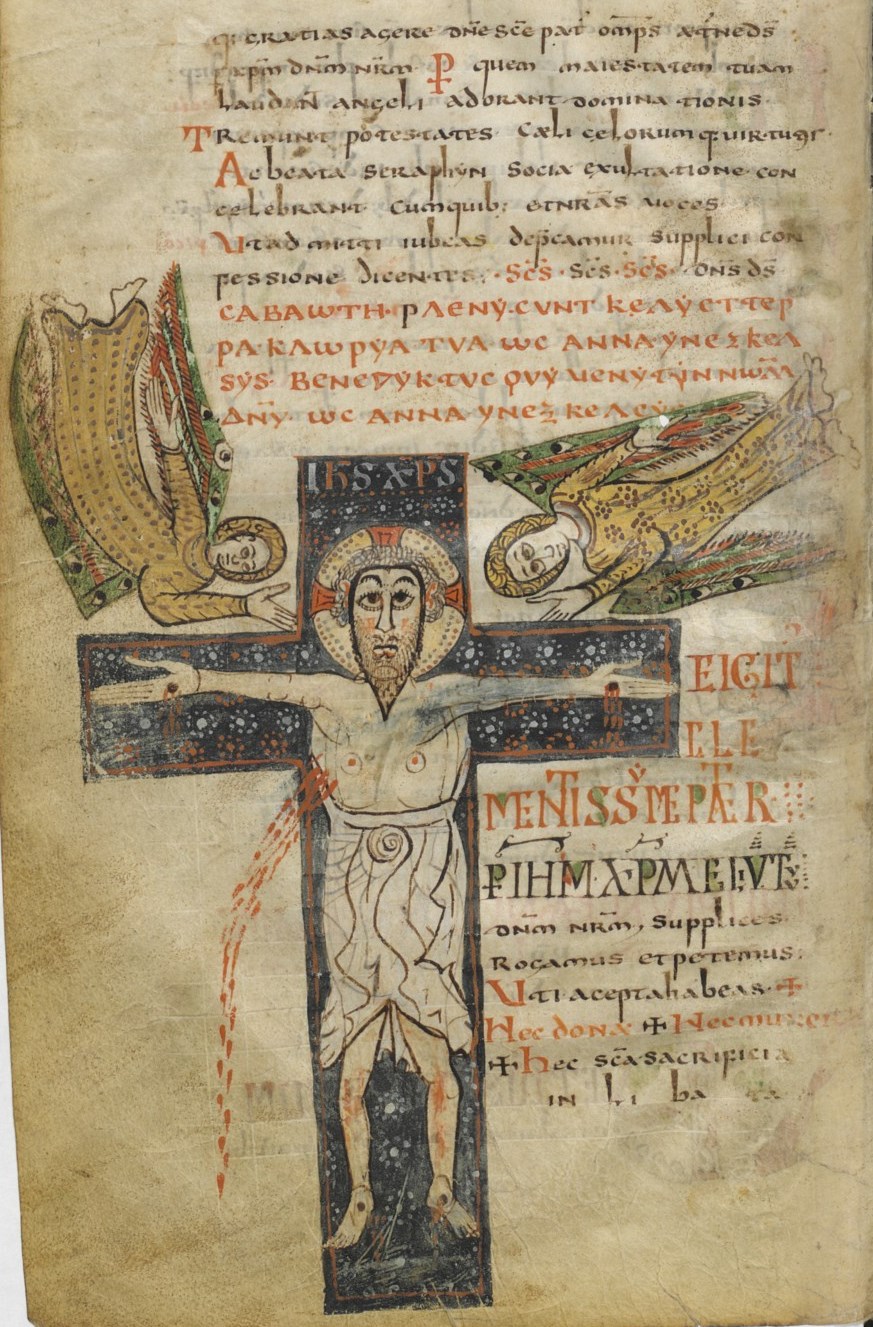 q: gratias agere dñe sc̄e pat̄ omp̄s ætne ds̄
p xp̄m dnm̄ nr̄m P quem maiestatem tuam
laudan̄ angeli adorant dominationis
Tremunt potestates Cæli celorumq: uirtutes
Ac beata seraphyn socia exultatione con
celebrant Cumquib: et nrās uoces
Ut admitti iubeas dep̄camur supplici con
fessione dicentes: Sc̄s Sc̄s Sc̄s dn̄s ds̄
CABAωTH· PLENY· CVNT KELY ETTER
PA· KLωPYA TVA· ωC ANNA YNEXKEL
SYS· BENEDYKTVC QVY VENYT YN NωM̄
DN̄Y· ωC ANNA YNEX
IHS XPS
EIGIT
CLE
MENTISSYME PATER
P IHM XPM
dnm̄ nr̄m, supplices
Rogamus et petemus:
Uti acepta habeas· ✠
Hec dona ✠ Hec
✠ hec sc̄a sacrificia
in li ba ta